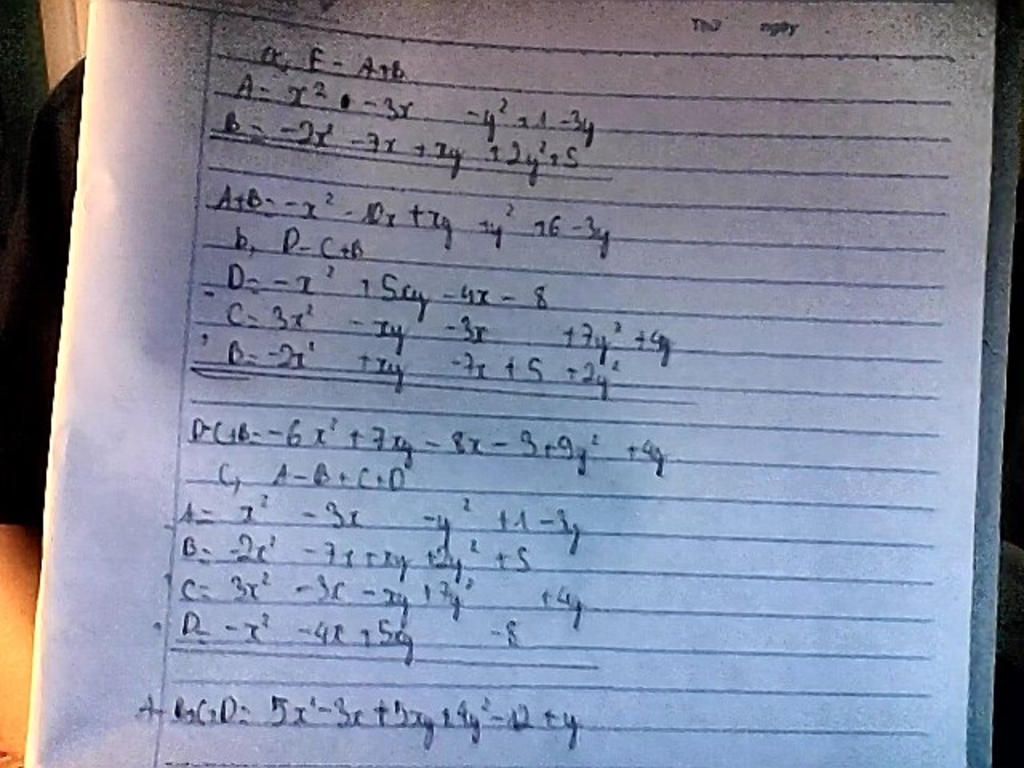 Thứ ngày
a, E = A+B
A = x² - 3x - y² + 1 - 3y
B = -2x² - 7x + xy + 2y² + 5
A+B = -x² - 10x + xy + y² + 6 - 3y
b, D - C + B
D = -x² + 5xy - 4x - 8
C = 3x² - xy - 3x + 7y² + 4y
B = -2x² + xy - 7x + 5 + 2y²
D-C+B = -6x² + 7xy - 8x - 3 + 9y² + 4y
C, A - B + C + D
A = x² - 3x - y² + 1 - 3y
B = -2x² - 7x + xy + 2y² + 5
C = 3x² - 3x - xy + 7y² + 4y
D = -x² - 4x + 5xy - 8
A-B+C+D = 5x² - 3x + 3xy + 4y² - 12 + y